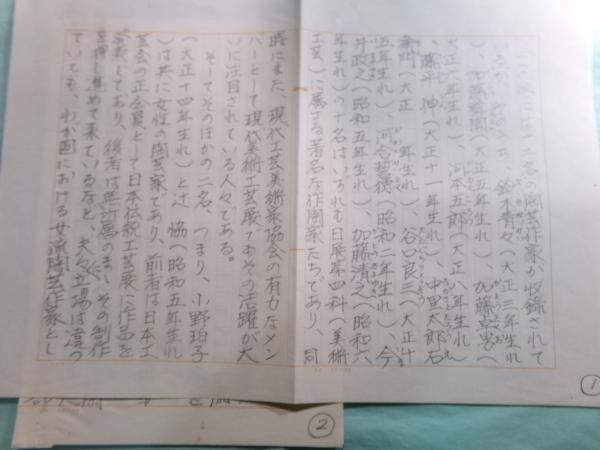 この巻には十二名の陶芸作家が収録されて
いるが、 ち、鈴木青々(大正三年生れ
)、加藤 (大正五年生れ)、加藤卓男(
大正六年生れ)、河本五郎(大正八年生れ
、藤平 伸(大正十一年生れ)、中里太郎右
衛門(大正 年生れ)、谷口良三(大正十
五年生れ)、河合誓徳(昭和二年生れ)、今
井政之(昭和五年生れ)、加藤清之(昭和六
年生れ)の十名はいずれも日展第四科(美術
工芸)に属する著名な作陶家たちであり、同
時にまた、現代工芸美術家協会の有力なメン
バーとして現代美術工芸展でもその活躍が大
いに注目されている人々である。
そしてそのほかの二名、つまり、小野珀子
(大正十四年生れ)と辻 協(昭和五年生れ
)は共に女性の陶芸家であり、前者は日本工
芸会の正会員として日本伝統工芸展に作品を
発表しており、後者は無所属のまゝその制作
を押し進めて来ているなど、夫々立場は違っ
ていても、わが国における女流陶芸作家とし
①
②